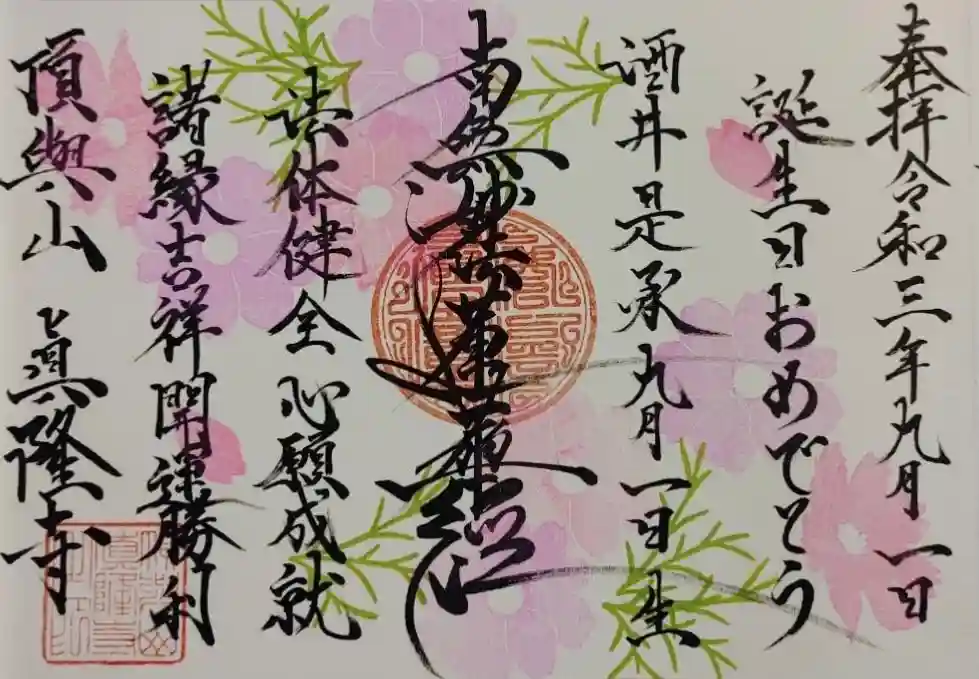 奉拝令和三年九月一日
誕生日おめでとう
酒井是承九月一日生
南無妙法蓮華経
法体健全 心願成就
諸縁吉祥開運勝利
頂興山 真隆寺